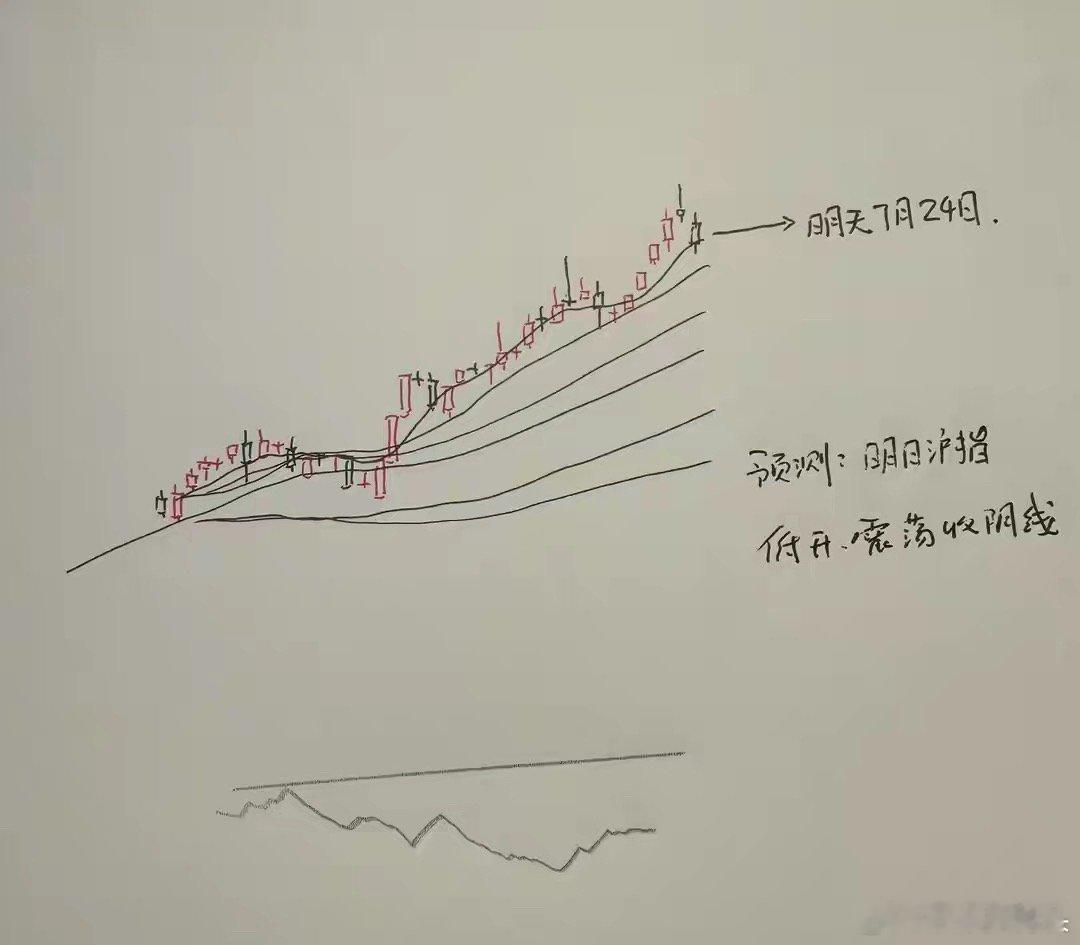 明天7月24日.
预测：明日沪指
低开、震荡收阴线